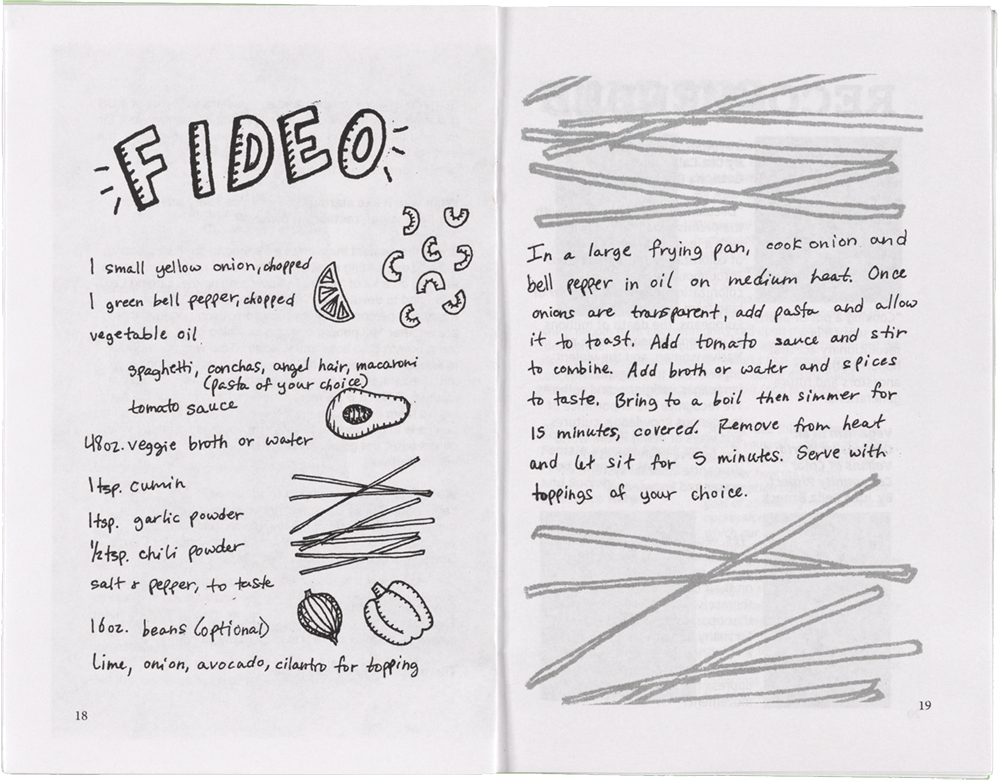 FIDEO
1 small yellow onion, chopped
1 green bell pepper, chopped
vegetable oil
spaghetti, conchas, angel hair, macaroni
(pasta of your choice)
tomato sauce
48oz. veggie broth or water
1tsp. cumin
1tsp. garlic powder
1/2tsp. chili powder
salt & pepper, to taste
16oz. beans (optional)
lime, onion, avocado, cilantro for topping
18
In a large frying pan, cook onion and
bell pepper in oil on medium heat. Once
onions are transparent, add pasta and allow
it to toast. Add tomato sauce and stir
to combine. Add broth or water and spices
to taste. Bring to a boil then simmer for
15 minutes, covered. Remove from heat
and let sit for 5 minutes. Serve with
toppings of your choice.
19